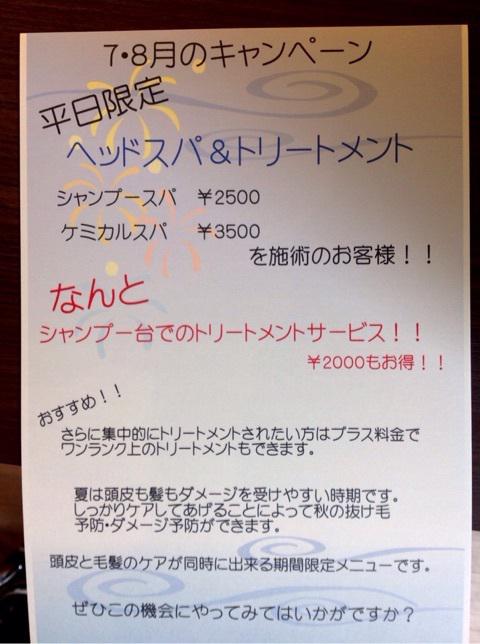 7・8月のキャンペーン
平日限定
ヘッドスパ＆トリートメント
シャンプースパ　￥2500
ケミカルスパ　￥3500
を施術のお客様！！
なんと
シャンプー台でのトリートメントサービス！！
￥2000もお得！！
おすすめ！！
さらに集中的にトリートメントされたい方はプラス料金で
ワンランク上のトリートメントもできます。
夏は頭皮も髪もダメージを受けやすい時期です。
しっかりケアしてあげることによって秋の抜け毛
予防・ダメージ予防ができます。
頭皮と毛髪のケアが同時に出来る期間限定メニューです。
ぜひこの機会にやってみてはいかがですか？